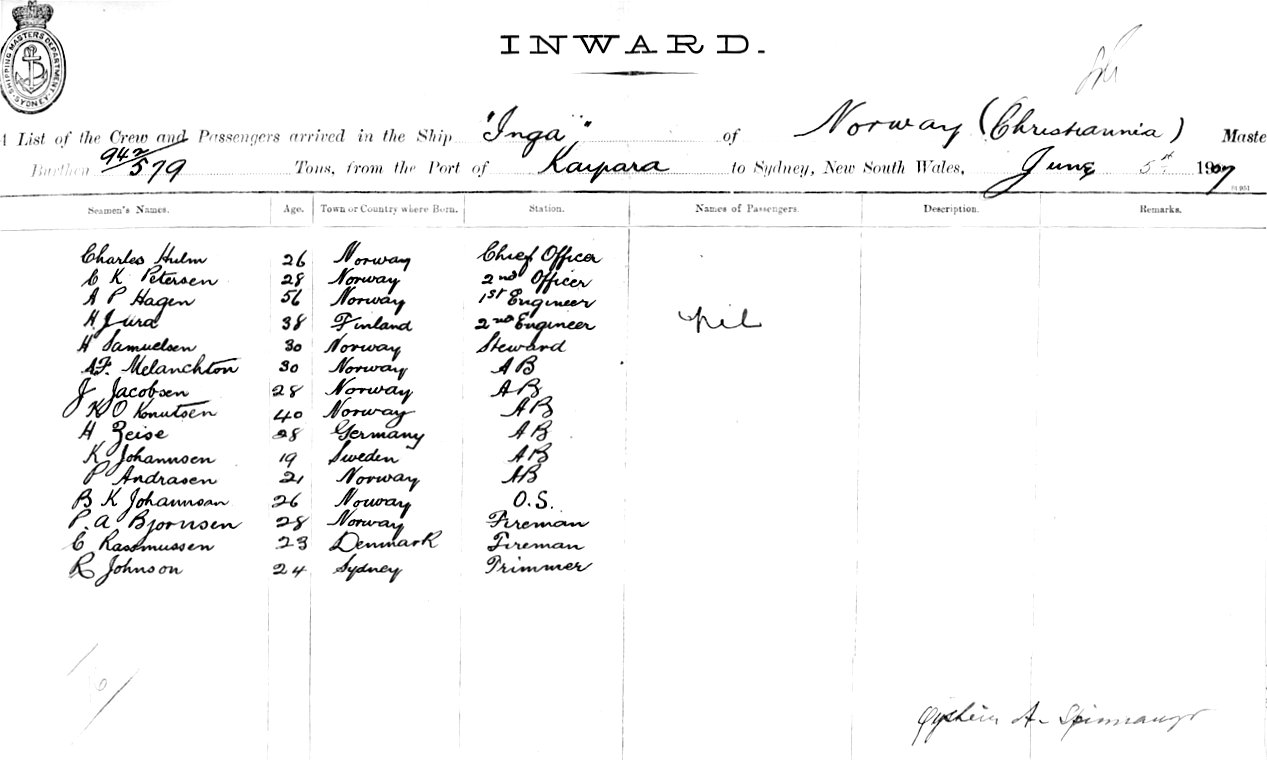 SHIPPING MASTERS DEPARTMENT
SYDNEY
INWARD.
A List of the Crew and Passengers arrived in the Ship "Inga" of Norway (Christiannia) Maste
Burthen 942/579 Tons, from the Port of Kaypara to Sydney, New South Wales, June 5th 1907
Seamen's Names. Age. Town or Country where Born. Station. Names of Passengers. Description. Remarks.
Charles Hulm 26 Norway Chief Officer
C K Petersen 28 Norway 2nd Officer
A P Hagen 56 Norway 1st Engineer
H Jura 38 Finland 2nd Engineer nil
H Samuelsen 30 Norway Steward
A.F. Melanchton 30 Norway A B
J Jacobsen 28 Norway A B
K O Knutsen 40 Norway A B
H Zeise 28 Germany A B
K Johannsen 19 Sweden A B
P Andrasen 21 Norway A B
B K Johannson 26 Norway O.S.
P. A Bjornsen 28 Norway Fireman
C Rassmussen 23 Denmark Fireman
R Johnson 24 Sydney Trimmer
A.